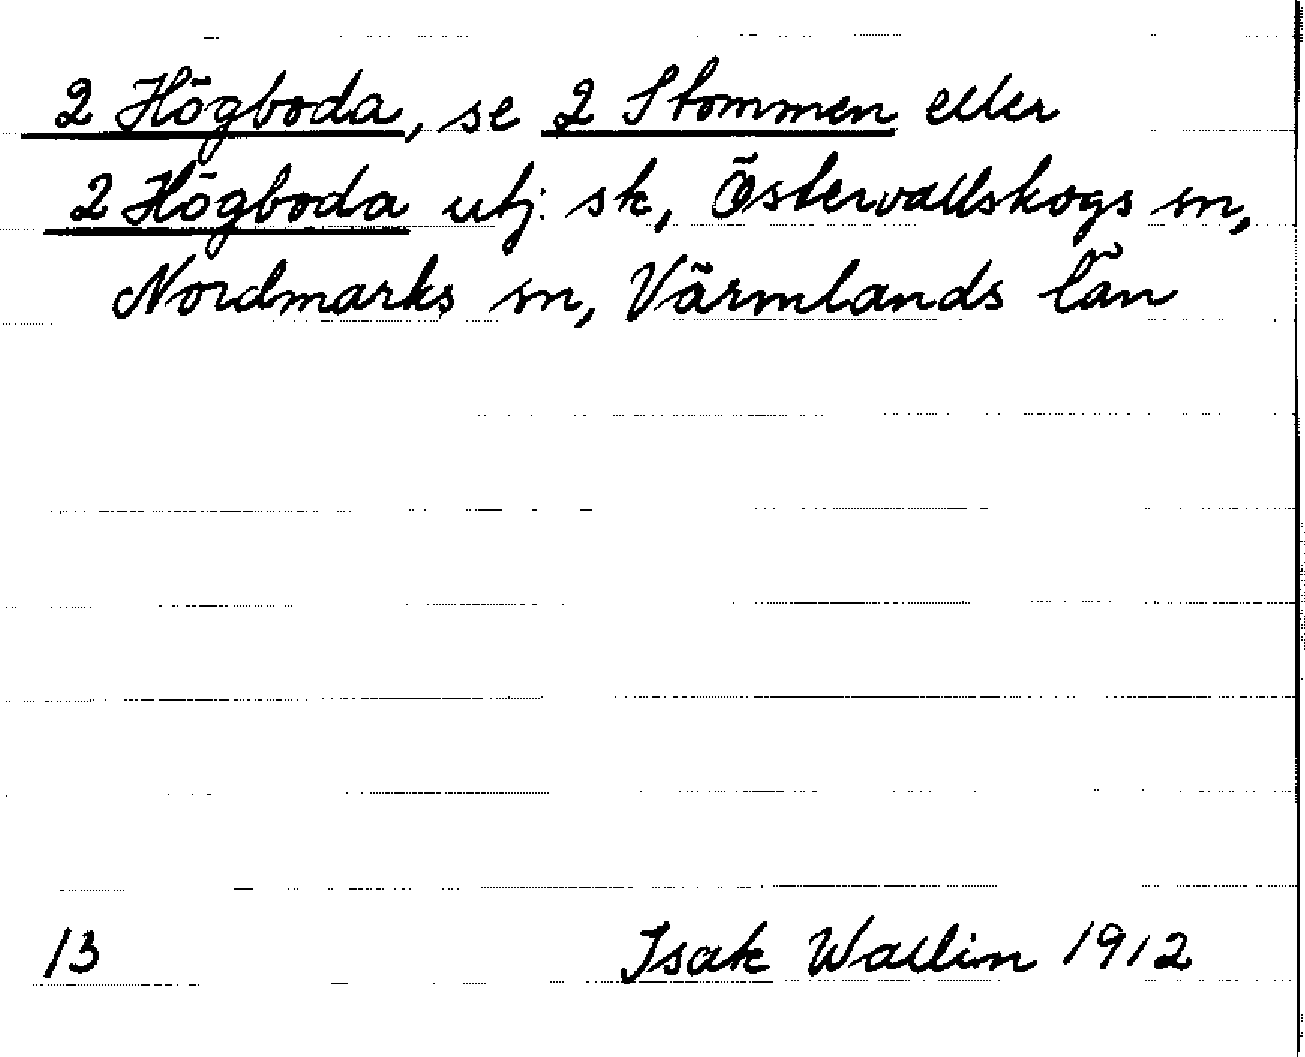 2 Högboda, se 2 Stommen eller
2 Högboda utj. sk, Östervallskogs sn,
Nordmarks sn, Värmlands län
13 Isak Wallin 1912